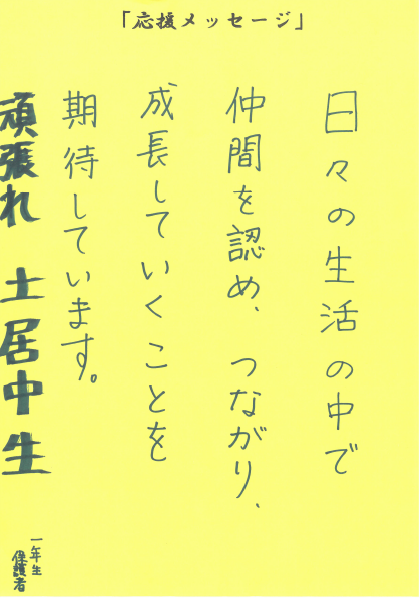 「応援メッセージ」
日々の生活の中で
仲間を認め、つながり、
成長していくことを
期待しています。
頑張れ 土居中生
一年生
保護者